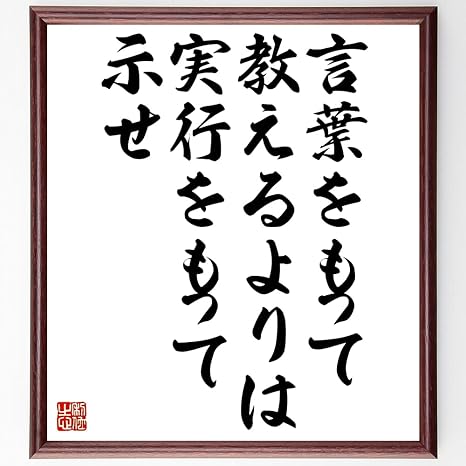 言葉をもって
教えるよりは
実行をもって
示せ